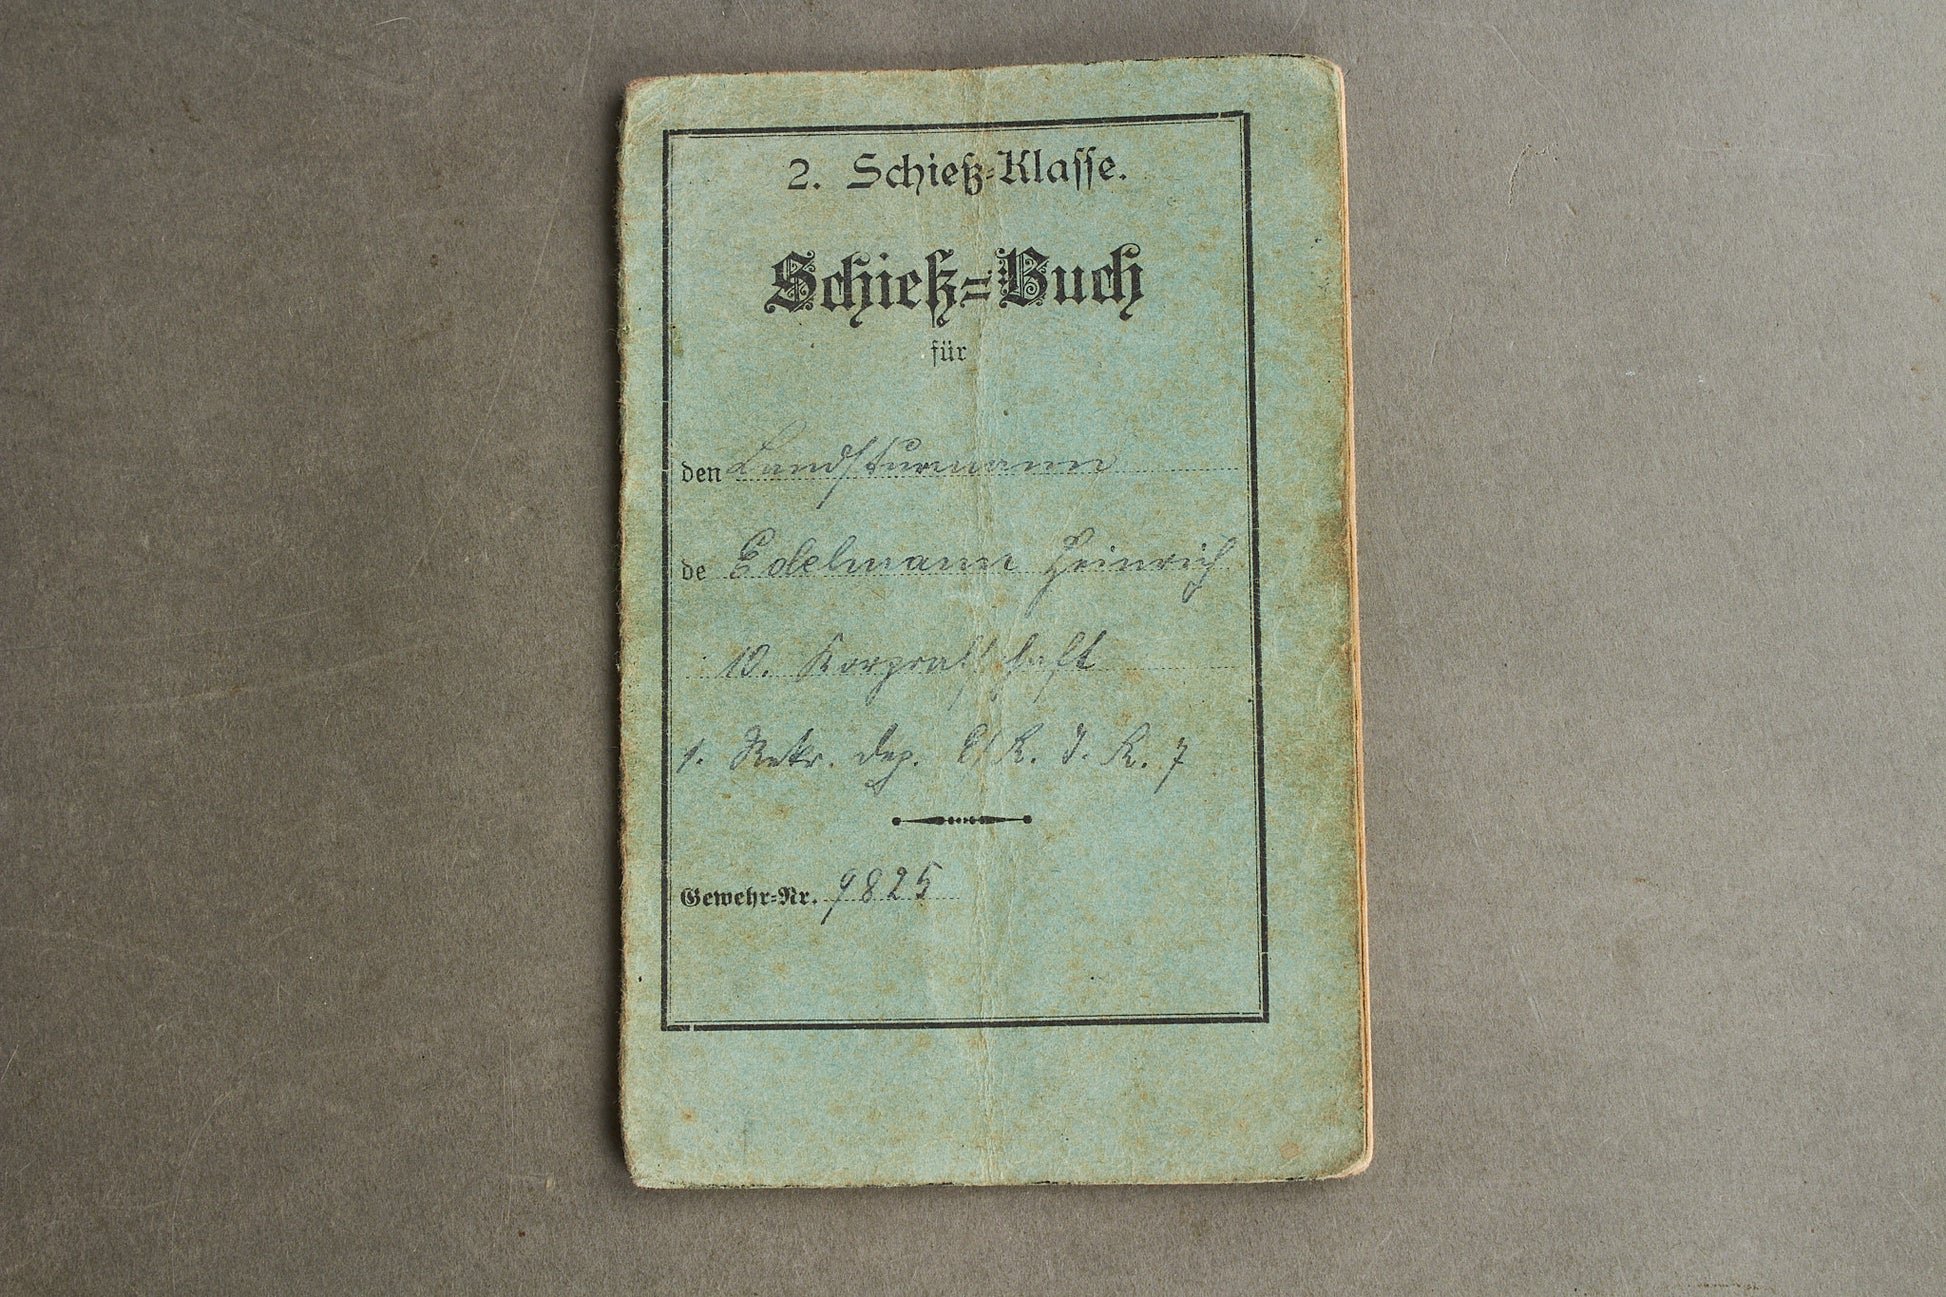 2. Schieß-Klasse.
Schieß-Buch
für
den Landsturmann
de Edelmann Heinrich
10. Korpralschaft
1. Rekr. Dep. E/R. I. R. 7
Gewehr-Nr. 9825